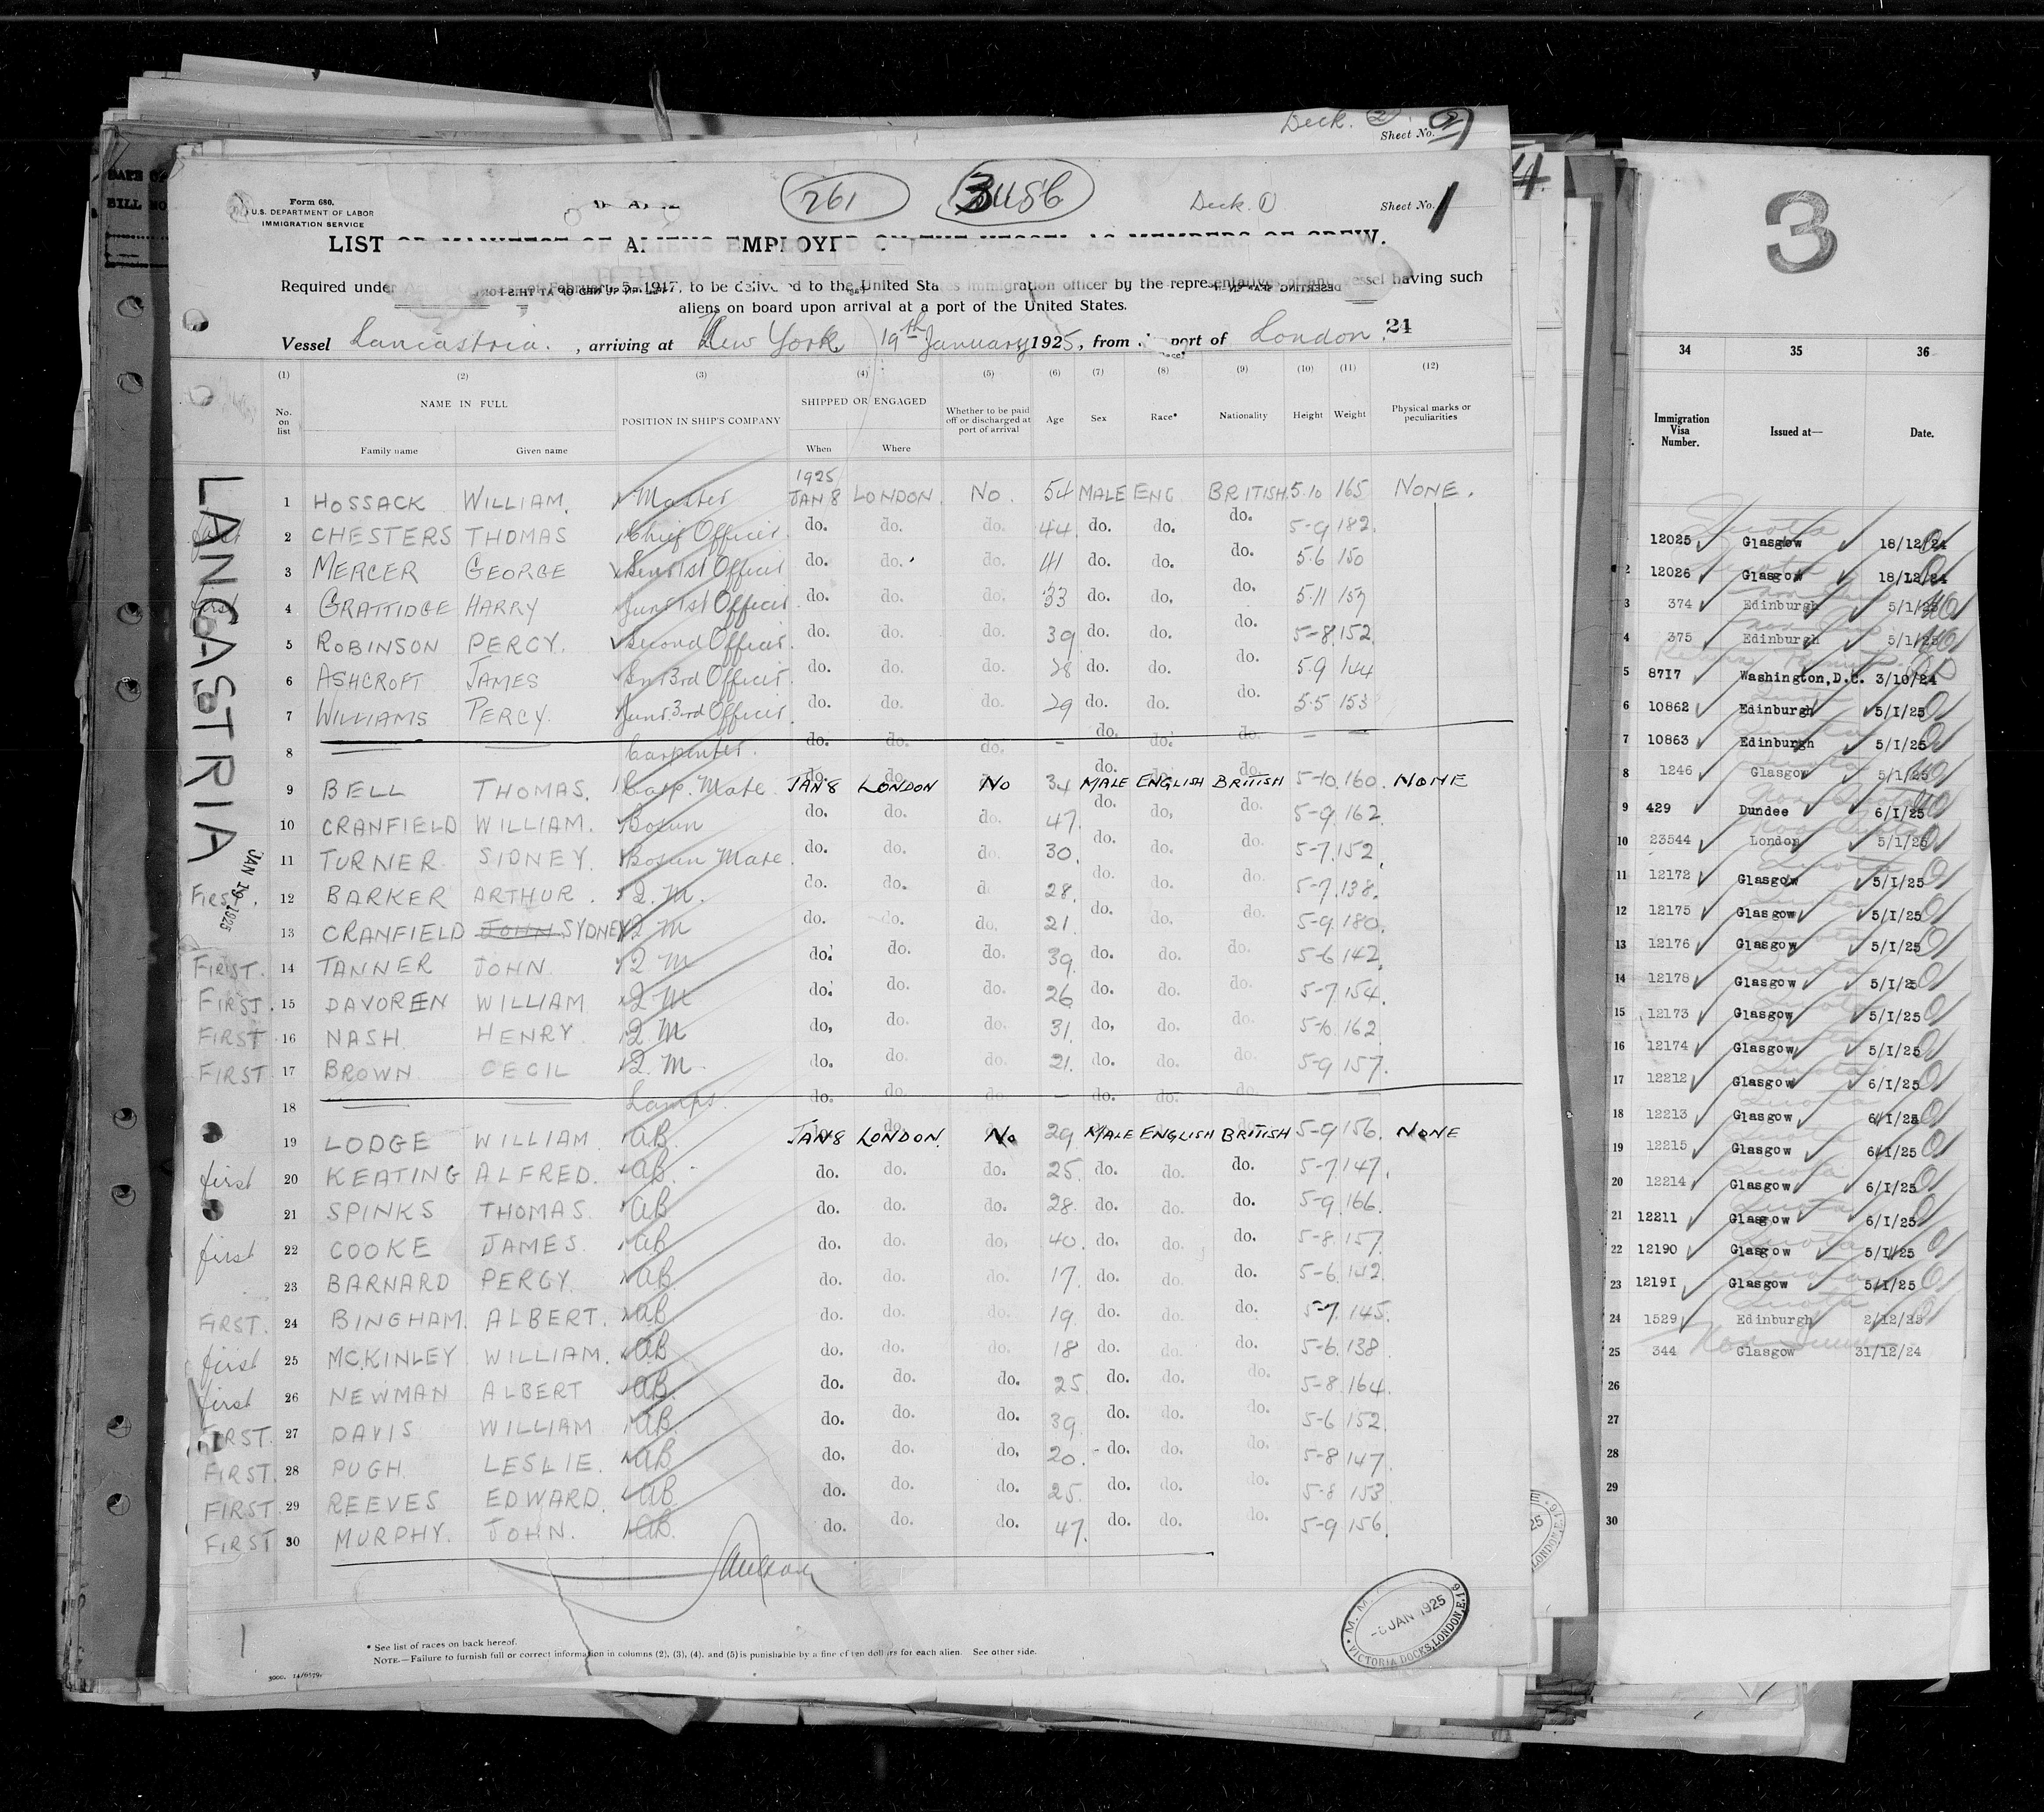 Deck. 2
Sheet No. 2
Form 680.
U.S. DEPARTMENT OF LABOR
IMMIGRATION SERVICE
261
Deck. 1
Sheet No. 1
LIST OR MANIFEST OF ALIENS EMPLOYED ON THE VESSEL AS MEMBERS OF CREW.
Required under February 5, 1917, to be delivered to the United States immigration officer by the representatives of any vessel having such
aliens on board upon arrival at a port of the United States.
Vessel Lancastria. , arriving at New York, 19th January 1925, from port of London. 24
(1) (2) (3) (4) (5) (6) (7) (8) (9) (10) (11) (12)
No. on list NAME IN FULL Family name Given name POSITION IN SHIP'S COMPANY SHIPPED OR ENGAGED When Where Whether to be paid off or discharged at port of arrival Age Sex Race* Nationality Height Weight Physical marks or peculiarities
LANCASTRIA
JAN 19 1925
1925
1 HOSSACK WILLIAM. Master JAN 8 LONDON. No. 54 MALE ENG BRITISH. 5.10 165 NONE.
first 2 CHESTERS THOMAS Chief Officer do. do. do. 44 do. do. do. 5-9 182.
3 MERCER GEORGE Senr 1st Officer do. do. do. 41 do. do. do. 5.6 150
first 4 GRATTIDGE HARRY Junr 1st Officer do. do. do. 33 do. do. do. 5.11 157
5 ROBINSON PERCY. Second Officer. do. do. do. 39 do. do. do. 5-8 152.
6 ASHCROFT JAMES Sn 3rd Officer. do. do. do. 28 do. do. do. 5.9 144
7 WILLIAMS PERCY. Junr. 3rd Officer do. do. do. 29 do. do. do. 5.5 153
8 — — Carpenter. do. do. do. - do. do. do. — —
9 BELL THOMAS. Carp. Mate JAN 8 LONDON No 34 MALE ENGLISH BRITISH 5-10. 160. NONE
10 CRANFIELD WILLIAM. Bosun do. do. do. 47. do. do. do. 5-9. 162.
11 TURNER SIDNEY. Bosun Mate. do. do. do. 30. do. do. do. 5-7. 152.
First. 12 BARKER ARTHUR. Q. M. do. do. do. 28. do. do. do. 5-7. 138.
13 CRANFIELD JOHN SYDNEY Q M do. do. do. 21. do. do. do. 5-9. 180.
FIRST. 14 TANNER JOHN Q M do. do. do. 39. do. do. do. 5-6 142.
FIRST. 15 DAVOREN WILLIAM Q M do. do. do. 26 do. do. do. 5-7 154.
FIRST 16 NASH HENRY. Q. M do. do. do. 31. do. do. do. 5-10. 162
FIRST 17 BROWN CECIL Q. M. do. do. do. 21. do. do. do. 5-9 157.
18 — — Lamps. do. do. do. — do. do. do. — —
19 LODGE WILLIAM AB. JAN 8 LONDON. No 29 MALE ENGLISH BRITISH 5-9 156. NONE
first 20 KEATING ALFRED. AB. do. do. do. 25. do. do. do. 5-7 147.
21 SPINKS THOMAS. AB do. do. do. 28. do. do. do. 5-9 166.
first 22 COOKE JAMES. AB do. do. do. 40. do. do. do. 5-8 157
23 BARNARD PERCY. AB. do. do. do. 17. do. do. do. 5-6. 142.
FIRST. 24 BINGHAM. ALBERT. AB. do. do. do. 19. do. do. do. 5-7. 145.
first 25 McKINLEY WILLIAM. AB do. do. do. 18 do. do. do. 5-6. 138
first 26 NEWMAN ALBERT AB. do. do. do. 25. do. do. do. 5-8. 164.
FIRST. 27 DAVIS WILLIAM AB. do. do. do. 39. do. do. do. 5-6 152.
FIRST. 28 PUGH LESLIE. AB do. do. do. 20. do. do. do. 5-8 147.
FIRST 29 REEVES EDWARD. AB. do. do. do. 25. do. do. do. 5-8 153
FIRST 30 MURPHY. JOHN. AB. do. do. do. 47. do. do. do. 5-9 156.
* See list of races on back hereof.
NOTE.—Failure to furnish full or correct information in columns (2), (3), (4), and (5) is punishable by a fine of ten dollars for each alien. See other side.
JAN 1925
VICTORIA DOCKS, LONDON, E.16
3
34 35 36
Immigration Visa Number. Issued at— Date.
12025 Glasgow 18/12/24
2 12026 Glasgow 18/12/24
3 374 Edinburgh 5/1/25
4 375 Edinburgh 5/1/25
5 8717 Washington, D.C. 3/10/24
6 10862 Edinburgh 5/1/25
7 10863 Edinburgh 5/1/25
8 1246 Glasgow 5/1/25
9 429 Dundee 6/1/25
10 23544 London 5/1/25
11 12172 Glasgow 5/1/25
12 12175 Glasgow 5/1/25
13 12176 Glasgow 5/1/25
14 12178 Glasgow 5/1/25
15 12173 Glasgow 5/1/25
16 12174 Glasgow 5/1/25
17 12212 Glasgow 6/1/25
18 12213 Glasgow 6/1/25
19 12215 Glasgow 6/1/25
20 12214 Glasgow 6/1/25
21 12211 Glasgow 6/1/25
22 12190 Glasgow 5/1/25
23 12191 Glasgow 5/1/25
24 1529 Edinburgh 2/12/25
25 344 Glasgow 31/12/24
26
27
28
29
30